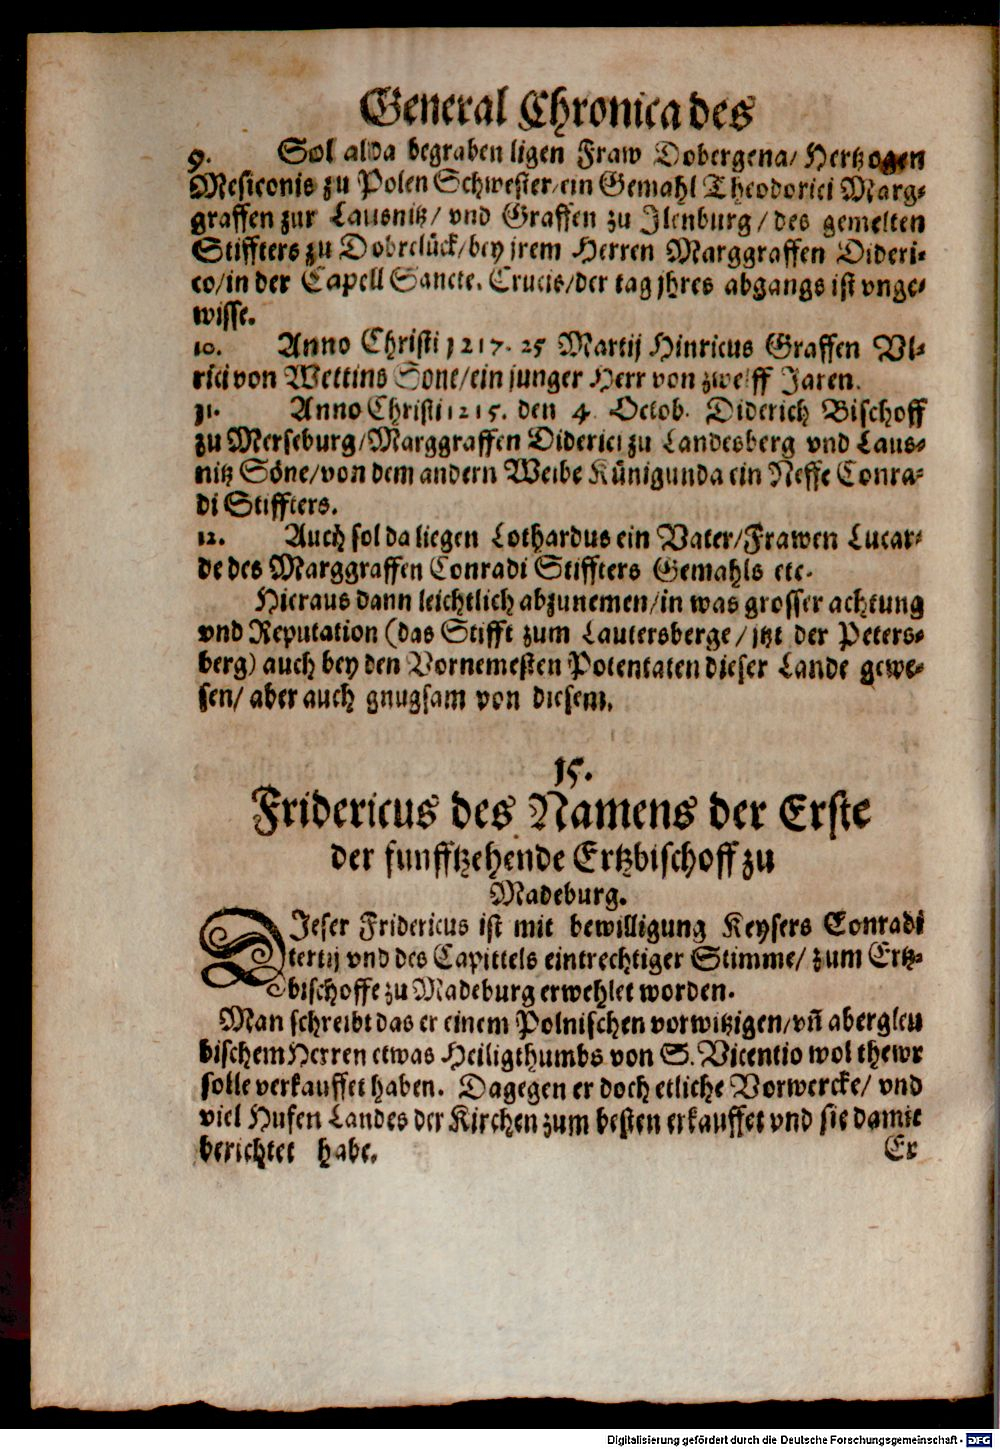 General Chronica des
9. Sol alda begraben ligen Fraw Dobergena/ Hertzogen
Mesiconis zu Polen Schwester/ein Gemahl Theodorici Marg-
graffen zur Lausnitz/ vnd Graffen zu Ilenburg/des gemelten
Stiffters zu Dobrelůck/bey jrem Herren Marggraffen Dideri-
co/in der Capell Sancte. Crucis/der tag jhres abgangs ist vnge-
wisse.
10. Anno Christi 1217. 25 Martij Hinricus Graffen Vl-
rici von Wettins Sone/ein junger Herr von zwelff Jaren.
11. Anno Christi 1215. den 4. Octob. Diderich Bischoff
zu Merseburg/Marggraffen Diderici zu Landesberg vnd Laus-
nitz Sőne/von dem andern Weibe Kůnigunda ein Neffe Conra-
di Stiffters.
12. Auch sol da liegen Lothardus ein Vater/Frawen Lucar-
de des Marggraffen Conradi Stiffters Gemahls etc.
Hieraus dann leichtlich abzunemen/in was grosser achtung
vnd Reputation (das Stifft zum Lautersberge/ jtzt der Peters-
berg) auch bey den Vornemesten Potentaten dieser Lande gewe-
sen/ aber auch gnugsam von diesem.
15.
Fridericus des Namens der Erste
der funfftzehende Ertzbischoff zu
Madeburg.
DIeser Fridericus ist mit bewilligung Keysers Conradi
tertij vnd des Capittels eintrechtiger Stimme/ zum Ertz-
bischoffe zu Madeburg erwehlet worden.
Man schreibt das er einem Polnischen vorwitzigen/vn̄ abergleu
bischem Herren etwas Heiligthumbs von S. Vicentio wol thewr
solle verkauffet haben. Dagegen er doch etliche Vorwercke/ vnd
viel Hufen Landes der Kirchen zum besten erkauffet vnd sie damit
berichtet habe.
Er
Digitalisierung gefördert durch die Deutsche Forschungsgemeinschaft - DFG